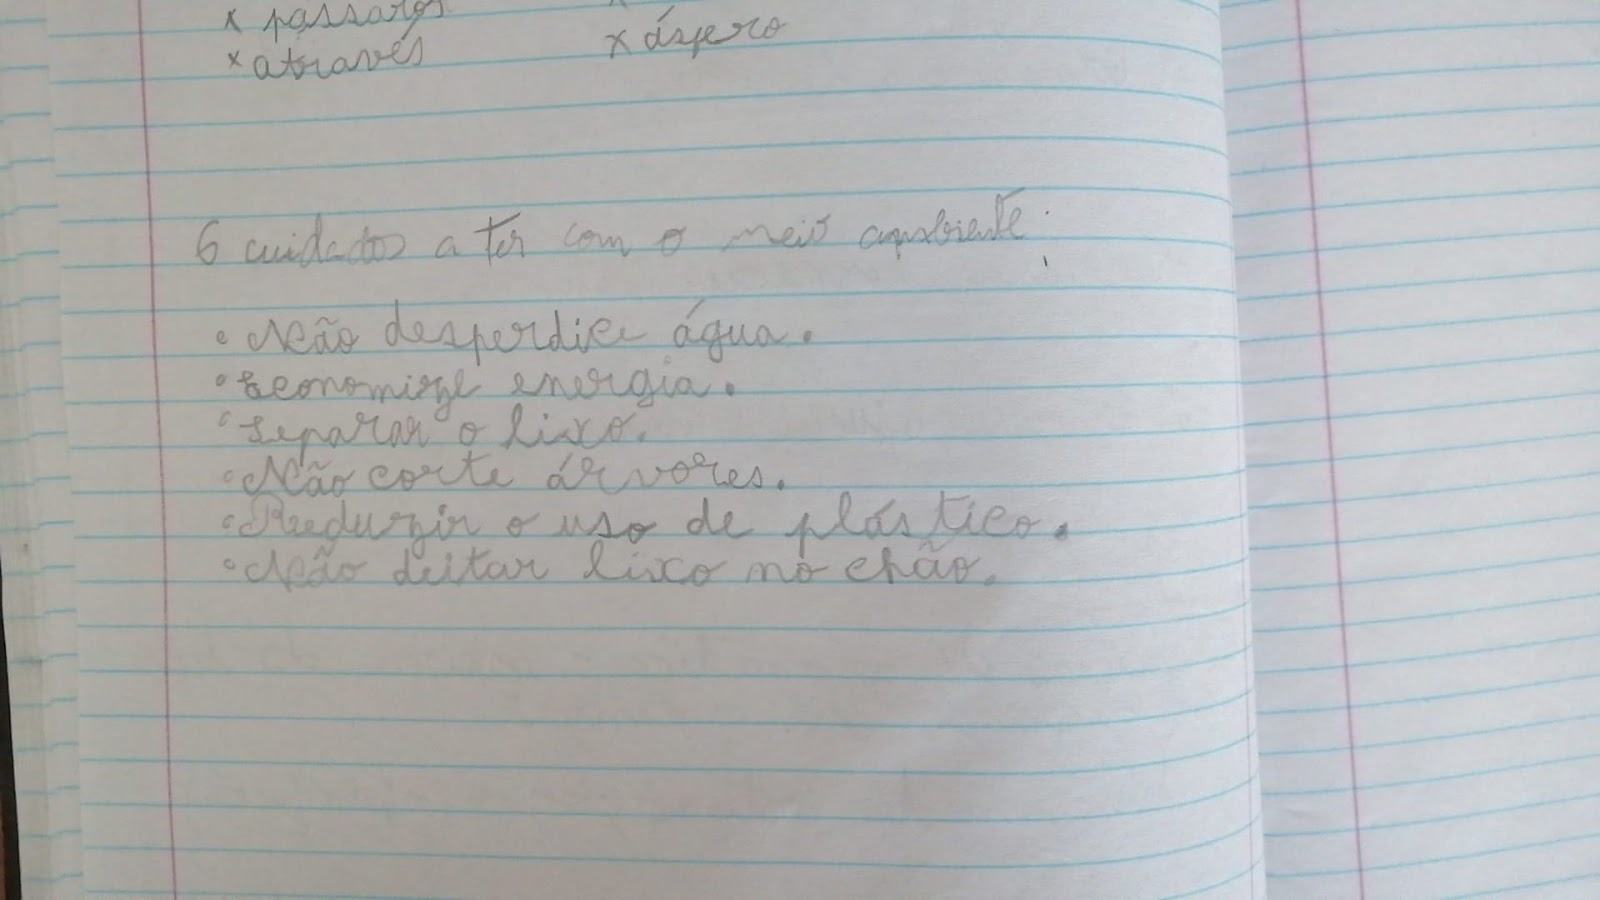 x pássaros
x através
x áspero
6 cuidados a ter com o meio ambiente:
• Não desperdice água.
• Economize energia.
• Separar o lixo.
• Não corte árvores.
• Reduzir o uso de plástico.
• Não deitar lixo no chão.